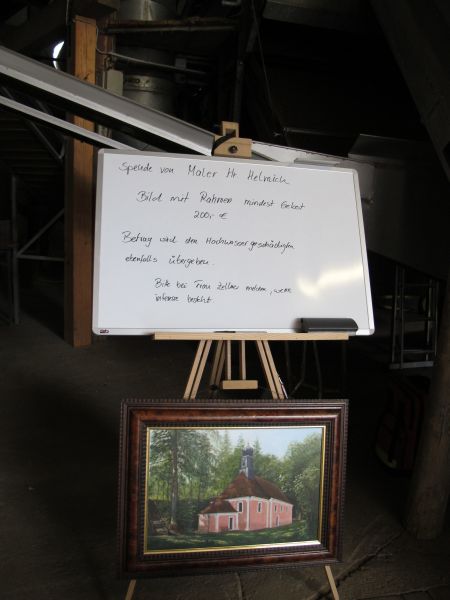 Spende von Maler Hr. Helmich
Bild mit Rahmen mindest Gebot
200,- €
Betrag wird den Hochwassergeschädigten
ebenfalls übergeben.
Bitte bei Frau Zellner melden, wenn
interesse besteht.